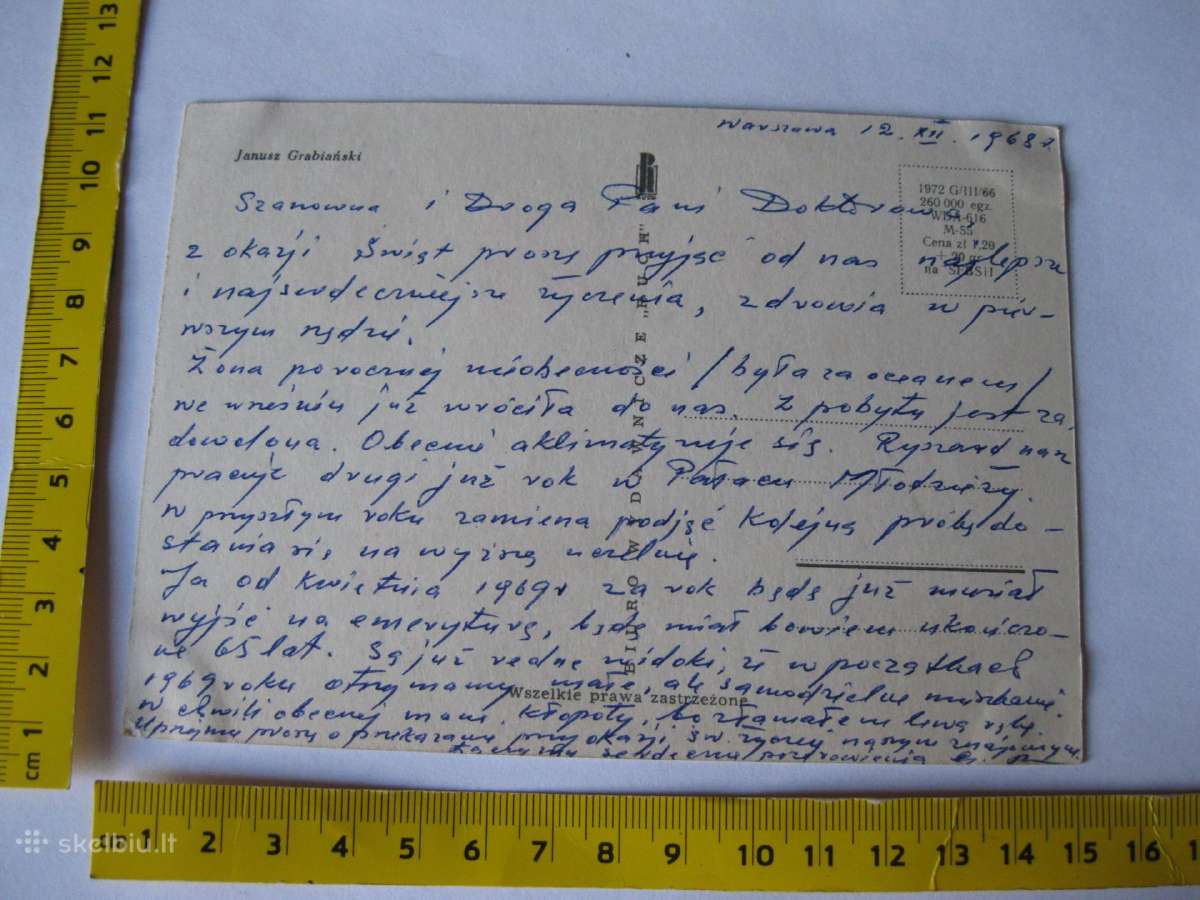 Warszawa 12.XII.1968 r
Janusz Grabiański
1972 G/III/66
260 000 egz.
WDA-616
M-55
Cena zł 1,20
+ 20 gr
na SFBS i I
Szanowna i Droga Pani Doktorowa,
z okazji Świąt proszę przyjąć od nas najlepsze
i najserdeczniejsze życzenia, zdrowia w pier-
wszym rzędzie.
Żona po rocznej nieobecności /była za oceanem/
we wrześniu już wróciła do nas. Z pobytu jest za
dowolona. Obecnie aklimatyzuje się. Ryszard nasz
pracuje drugi już rok w Pałacu Młodzieży.
W przyszłym roku zamierza podjąć kolejną próbę do-
stania się na wyższą uczelnię.
Ja od kwietnia 1969r za rok będę już musiał
wyjść na emeryturę, będę miał bowiem ukończo-
ne 65 lat. Są już realne widoki, że w początkach
1969 roku otrzymamy małe, ale samodzielne mieszkanie.
W chwili obecnej mam kłopoty, bo złamałem lewą rękę.
Uprzejmie proszę o przekazanie przy okazji św. życzeń naszym znajomym.
Łączymy serdeczne pozdrowienia
BIURO WYDAWNICZE „RUCH"
Wszelkie prawa zastrzeżone
cm 1 2 3 4 5 6 7 8 9 10 11 12 13
cm 1 2 3 4 5 6 7 8 9 10 11 12 13 14 15 16 1
skelbiu.lt